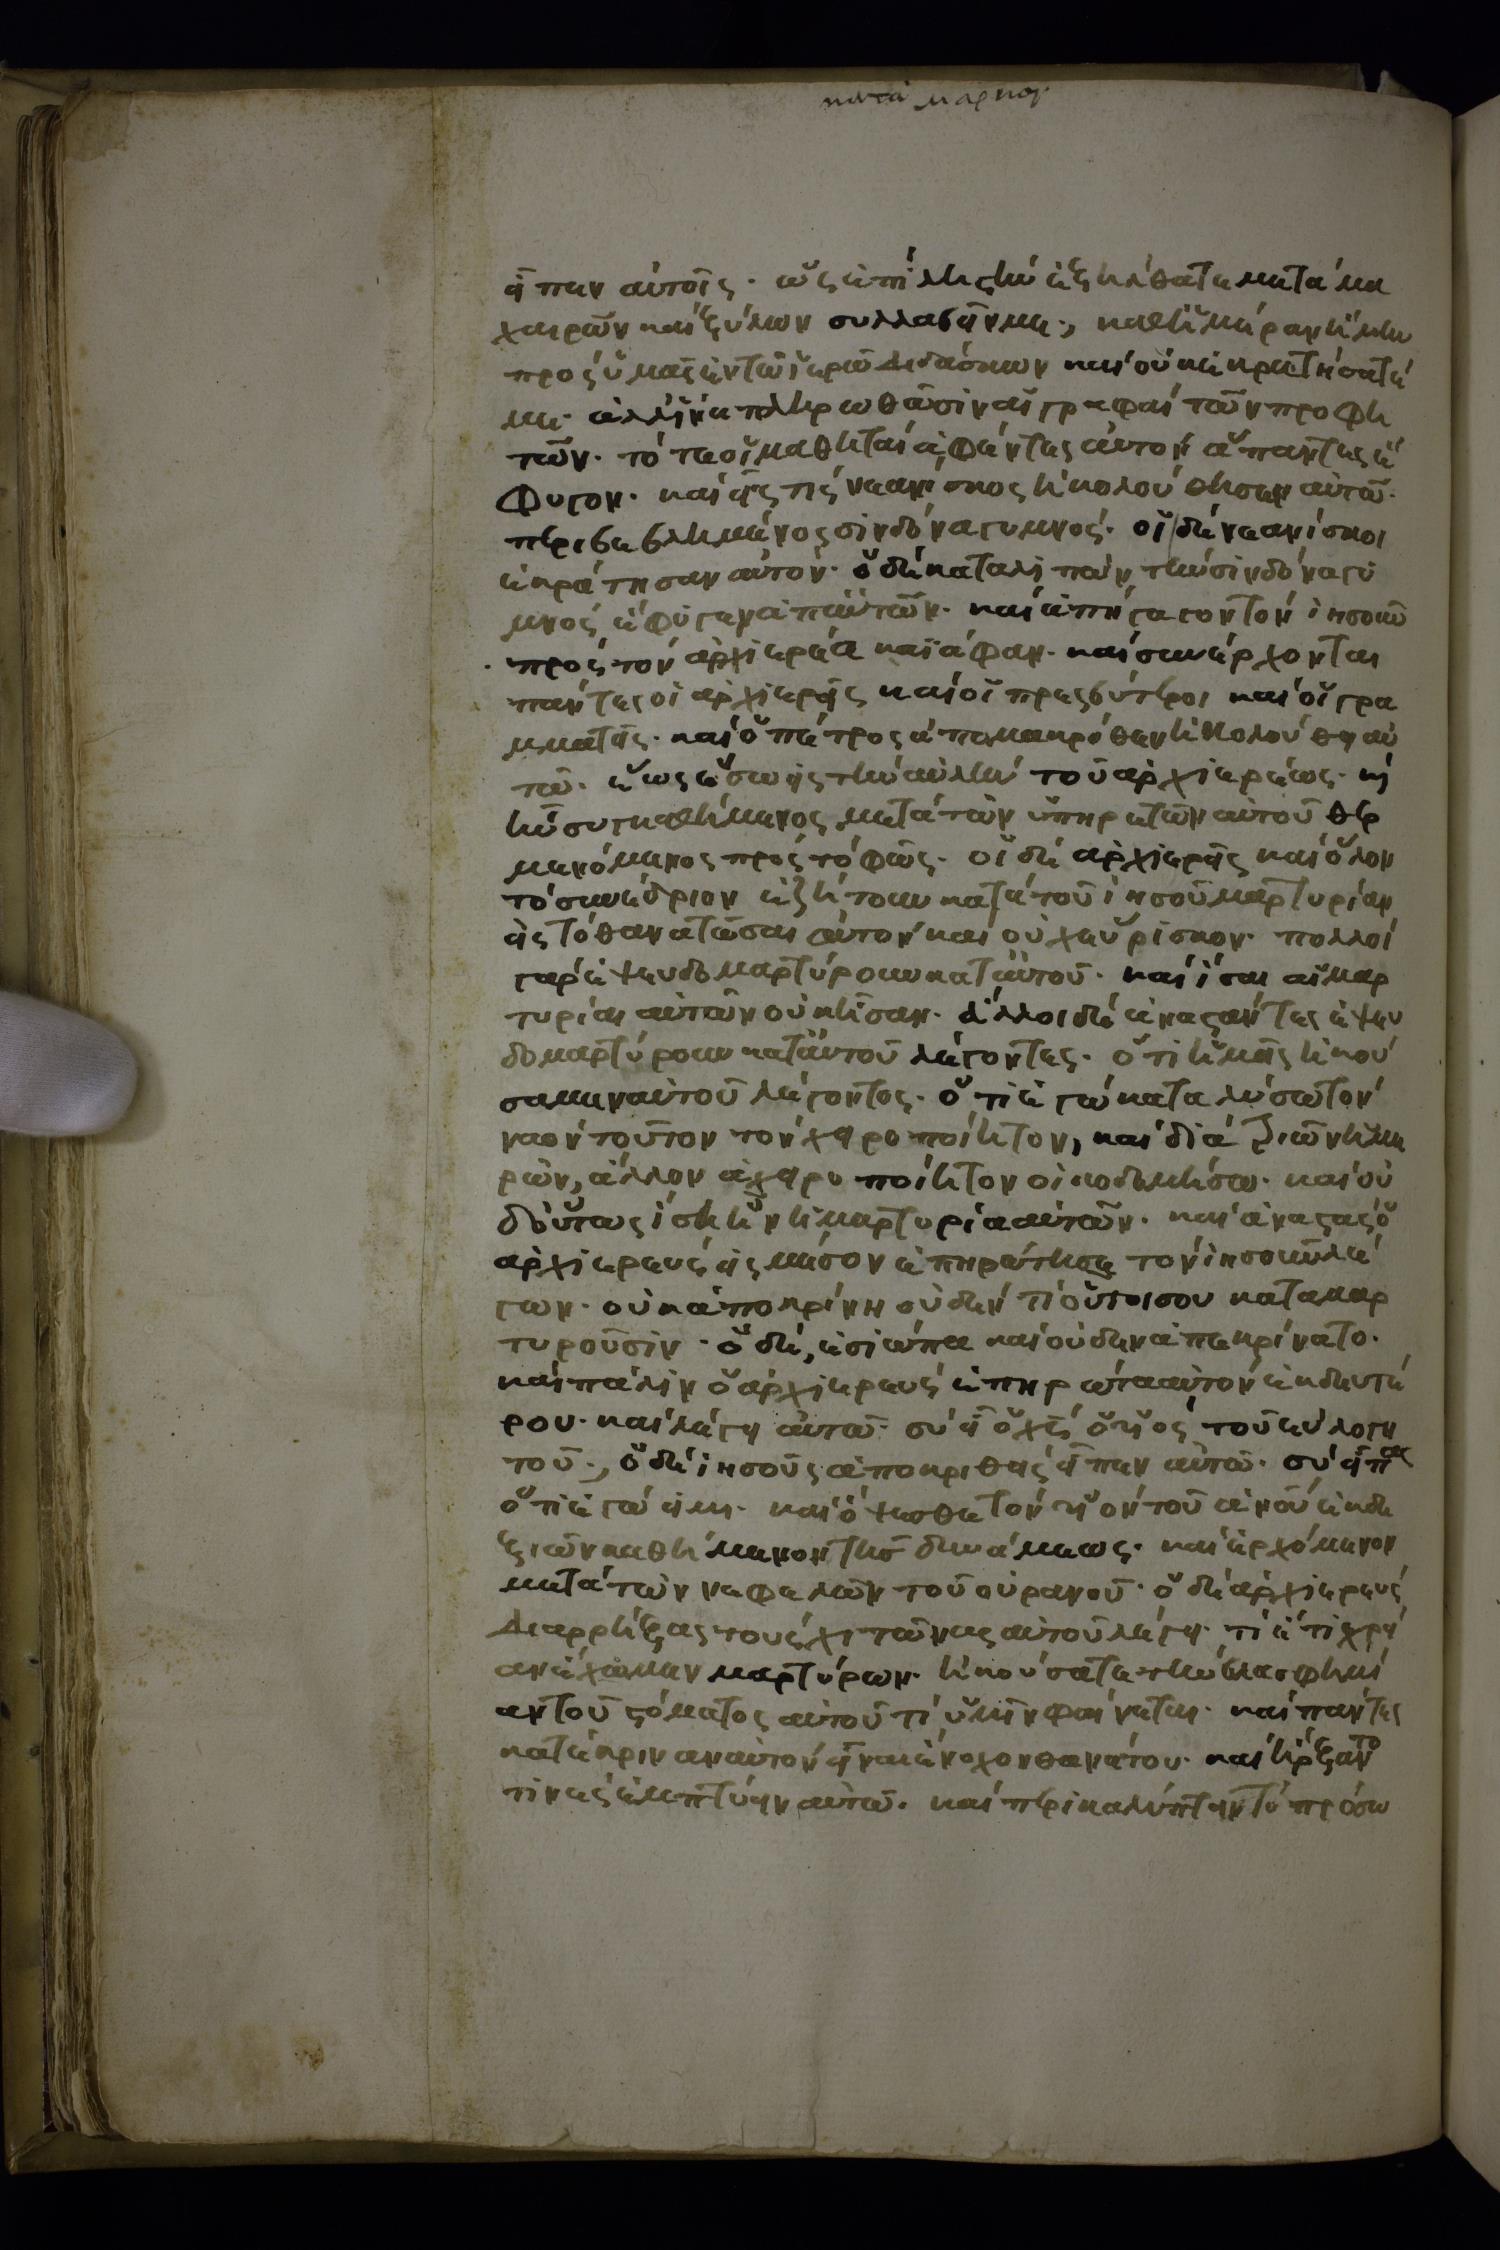 κατὰ μάρκον
εἶπεν αὐτοῖς· ὡς ἐπὶ ληστὴν ἐξήλθατε μετὰ μα
χαιρῶν καὶ ξύλων συλλαβεῖν με·, καθἡμέραν ἤμην
πρὸς ὑμᾶς ἐν τῶ ἱερῶ διδάσκων καὶ οὐκ ἐκρατήσατέ
με· ἀλλἵνα πληρωθῶσιν αἱ γραφαὶ τῶν προφη
τῶν· τότε οἱ μαθηταὶ ἀφέντες αὐτὸν ἅπαντες ἔ
φυγον· καὶ εἷς τις νεανίσκος ἠκολούθησεν αὐτῶ·
περιβεβλημένος σινδόνα γυμνός· οἱ δὲ νεανίσκοι
ἐκράτησαν αὐτόν· ὁ δὲ καταλιπὼν τὴν σινδόνα γυ
μνὸς ἔφυγεν ἀπαὐτῶν· καὶ ἀπήγαγον τὸν ἰησοῦν
πρὸς τὸν ἀρχιερέα καϊάφαν· καὶ συνέρχονται
πάντες οἱ ἀρχιερεῖς καὶ οἱ πρεσβύτεροι καὶ οἱ γρα
μματεῖς· καὶ ὁ πέτρος ἀπομακρόθεν ἠκολούθει αὐ
τῶ· ἕως ἔσω εἰς τὴν αὐλὴν τοῦ ἀρχιερέως· κὶ
ἦν συγκαθήμενος μετὰ τῶν ὑπηρετῶν αὐτοῦ θερ
μενόμενος πρὸς τὸ φῶς· οἱ δὲ ἀρχιερεῖς καὶ ὅλον
τὸ συνέδριον ἐζήτουν κατὰ τοῦ ἰησοῦ μαρτυρίαν
εἰς τὸ θανατῶσαι αὐτὸν καὶ οὐχ εὕρισκον· πολλοὶ
γὰρ ἐψευδομαρτύρουν καταὐτοῦ· καὶ ἴσαι αἱ μαρ
τυρίαι αὐτῶν οὐκ ἦσαν· ἄλλοι δὲ ἀναστάντες ἐψευ
δομαρτύρουν καταὐτοῦ λέγοντες· ὅτι ἡμεῖς ἠκού
σαμεν αὐτοῦ λέγοντος· ὅτι ἐγὼ καταλύσω τὸν
ναὸν τοῦτον τὸν χειροποίητον, καὶ διὰ τριῶν ἡμε
ρῶν, ἄλλον ἀχειροποίητον οἰκοδομήσω· καὶ οὐ
δοὕτως ἴση ἦν ἡ μαρτυρία αὐτῶν· καὶ ἀναστὰς ὁ
ἀρχιερεὺς εἰς μέσον ἐπηρώτησε τὸν ἰησοῦν λέ
γων· οὐκ ἀποκρίνη οὐδέν τί οὗτοι σου καταμαρ
τυροῦσιν· ὁ δὲ, ἐσιώπα καὶ οὐδὲν ἀπεκρίνατο·
καὶ πάλιν ὁ ἀρχιερεὺς ἐπηρώτα αὐτὸν ἐκ δευτέ
ρου· καὶ λέγει αὐτῶ· σὺ εἶ ὁ χς ὁ υἱὸς τοῦ εὐλογη
τοῦ·, ὁ δὲ ἰησοῦς ἀποκριθεὶς εἶπεν αὐτῶ· σὺ εἶπας
ὅτι ἐγώ εἰμι· καὶ ὄψεσθε τὸν υἱὸν τοῦ ανου ἐκ δε
ξιῶν καθήμενον τῆς δυνάμεως· καὶ ἐρχόμενον
μετὰ τῶν νεφελῶν τοῦ οὐρανοῦ· ὁ δὲ ἀρχιερεὺς
διαρρήξας τοὺς χιτῶνας αὐτοῦ λέγει· τί ἔτι χρεί
αν ἔχομεν μαρτύρων· ἠκούσατε τὴν βλασφημί
αν τοῦ στόματος αὐτοῦ τί ὑμῖν φαίνεται· καὶ πάντες
κατέκριναν αὐτὸν εἶναι ἔνοχον θανάτου· καὶ ἤρξαντο
τινὲς ἐμπτύειν αὐτῶ· καὶ περικαλύπτειν τὸ πρόσω